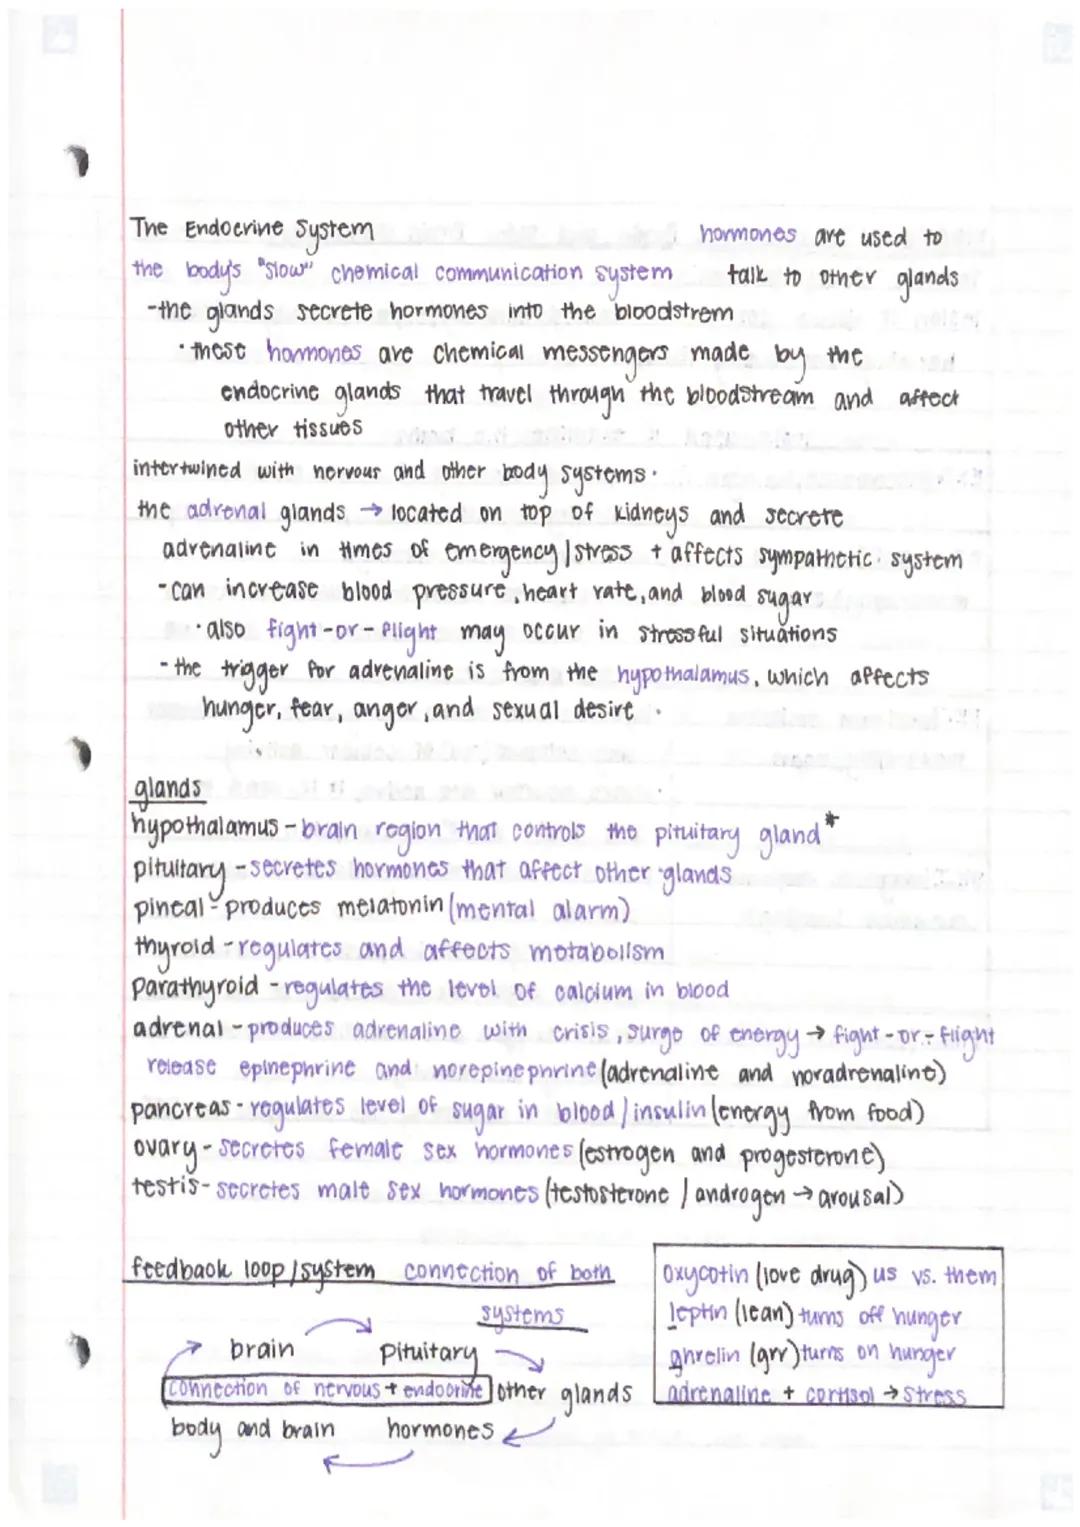 The Endocrine System
hormones are used to
the body's "slow" chemical communication system
talk to other glands
-the glands secrete hormones into the bloodstrem
· these hormones are chemical messengers made by the
endocrine glands that travel through the bloodstream and affect
other tissues
intertwined with nervous and other body systems.
the adrenal glands → located on top of kidneys and secrete
adrenaline in times of emergency/stress + affects sympathetic system
-can increase blood pressure, heart rate, and blood sugar
· also fight-or-flight may occur in stressful situations
-the trigger for adrenaline is from the hypothalamus, which affects
hunger, fear, anger, and sexual desire.
glands
hypothalamus - brain region that controls the pituitary gland*
pituitary - secretes hormones that affect other glands
pineal - produces melatonin (mental alarm)
thyroid - regulates and affects metabolism
parathyroid - regulates the level of calcium in blood
adrenal - produces adrenaline with crisis, surge of energy → fight-or-flight
release epinephrine and norepinephrine (adrenaline and noradrenaline)
pancreas - regulates level of sugar in blood/insulin (energy from food)
ovary - secretes female sex hormones (estrogen and progesterone)
testis - secretes male sex hormones (testosterone / androgen → arousal)
feedback loop/system connection of both
systems
brain → pituitary
connection of nervous + endocrine other glands
body and brain hormones
oxycotin (love drug) us vs. them
leptin (lean) turns off hunger
ghrelin (grr) turns on hunger
adrenaline + cortisol → stress